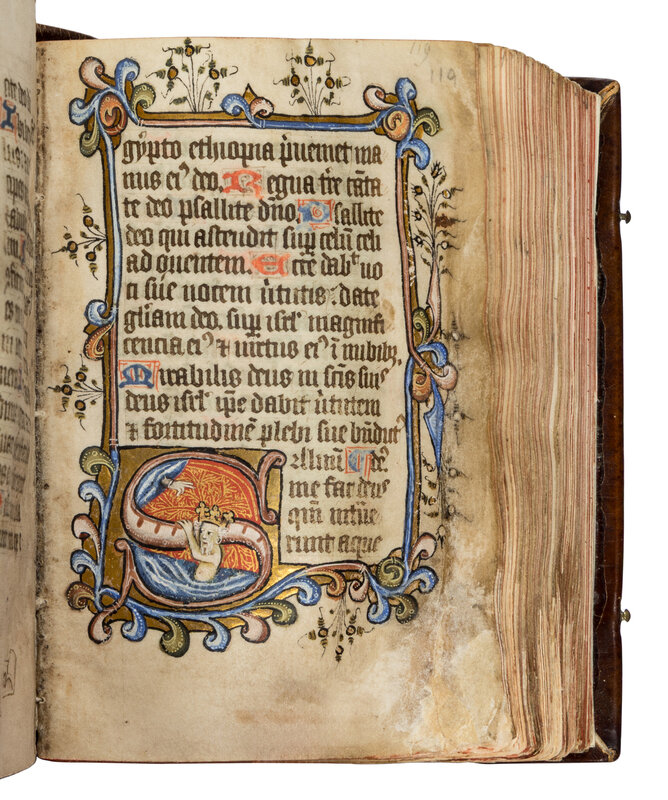 119
119
gypto ethiopia p̄ueniet ma
nus eiꝰ deo. Regna t̄re cāta
te deo psallite dn̄o. Psallite
deo qui ascendit suꝑ celū celi
ad orientem. Ecce dabit uo
ci sue uocem ūtutis: date
gl̄iam deo. suꝑ isrl̄ magnifi
cencia eiꝰ ⁊ uirtus eiꝰ ī nubibꝫ.
Mirabilis deus in sc̄is suis
deus isrl̄ ip̄e dabit ūtutem
⁊ fortitudinē plebi sue bn̄dictꝰ
Saluū deꝰ.
me fac deus
qm̄ intᵃue
runt aque